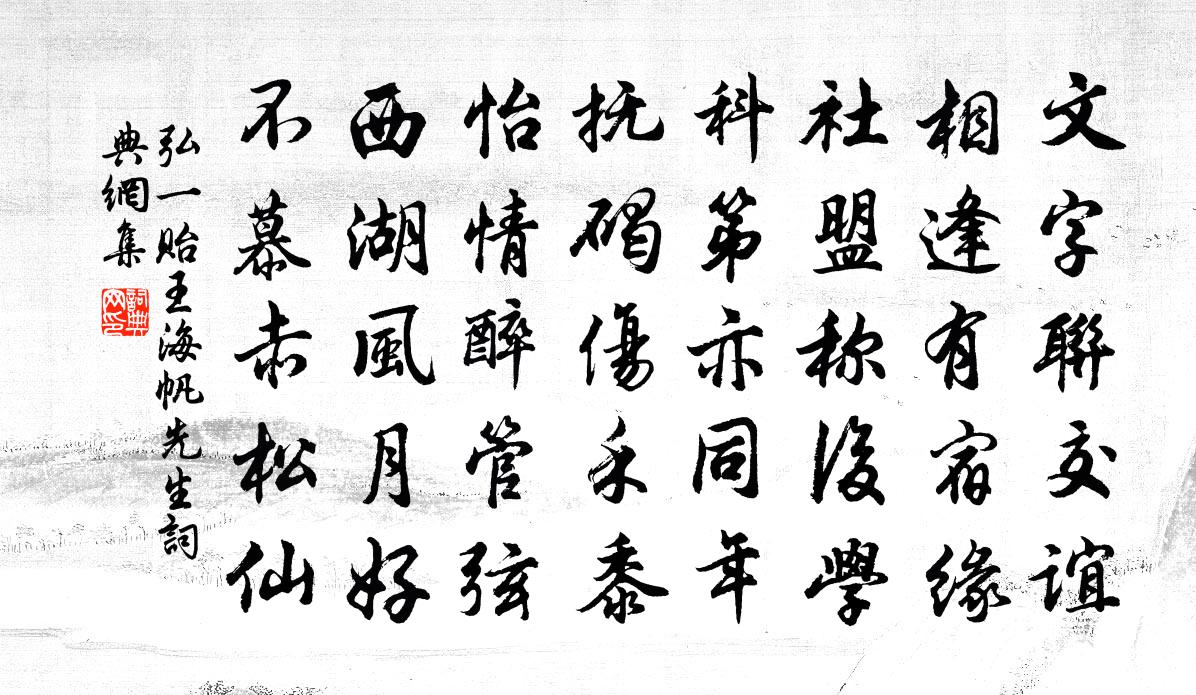 文字聯交誼
相逢有宿緣
社盟称後學
科第亦同年
抚碣傷禾黍
怡情醉管弦
西湖風月好
不慕赤松仙
弘一貽王海帆先生詞
典網集
詞典
網印